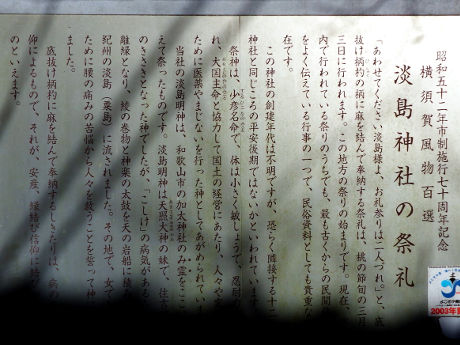 昭和五十二年市制施行七十周年記念
横須賀風物百選
淡島神社の祭礼
「あわせてください淡島様よ、お礼参りは二人つれ。」と、底
抜け柄杓の柄に麻を結んで奉納する祭礼は、桃の節旬の三月
三日に行われます。この地方の祭りの始まりです。現在、
内で行われている祭りのうちでも、最も古くからの民間
をよく伝えている行事の一つで、民俗資料としても貴重な
在です。
この神社の創建年代は不明ですが、恐らく隣接する十二
神社と同じころの平安後期ではないかといわれています
祭神は、少彦名命で、体は小さく敏しょうで、忍耐
れ、大国主命と協力して国土の経営にあたり、人々や
ために医薬やまじないを行った神としてあがめられていま
当社の淡島明神は、和歌山市の加太神社のみ霊をここ
えて祭ったものです。淡島明神は天照大神の妹で、住吉
のきさきとなった神でしたが、「こしけ」の病気がある
離縁となり、綾の巻物と神楽の太鼓を天の岩船に積
紀州の淡島（粟島）に流されました。その地で、女
ために腰の痛みの苦悩から人々を救うことを誓って神
ました。
底抜け柄杓に麻を結んで奉納するしきたりは、病の
仰によるもので、それが、安産、縁結び信仰に結び
のといえます。
2003年